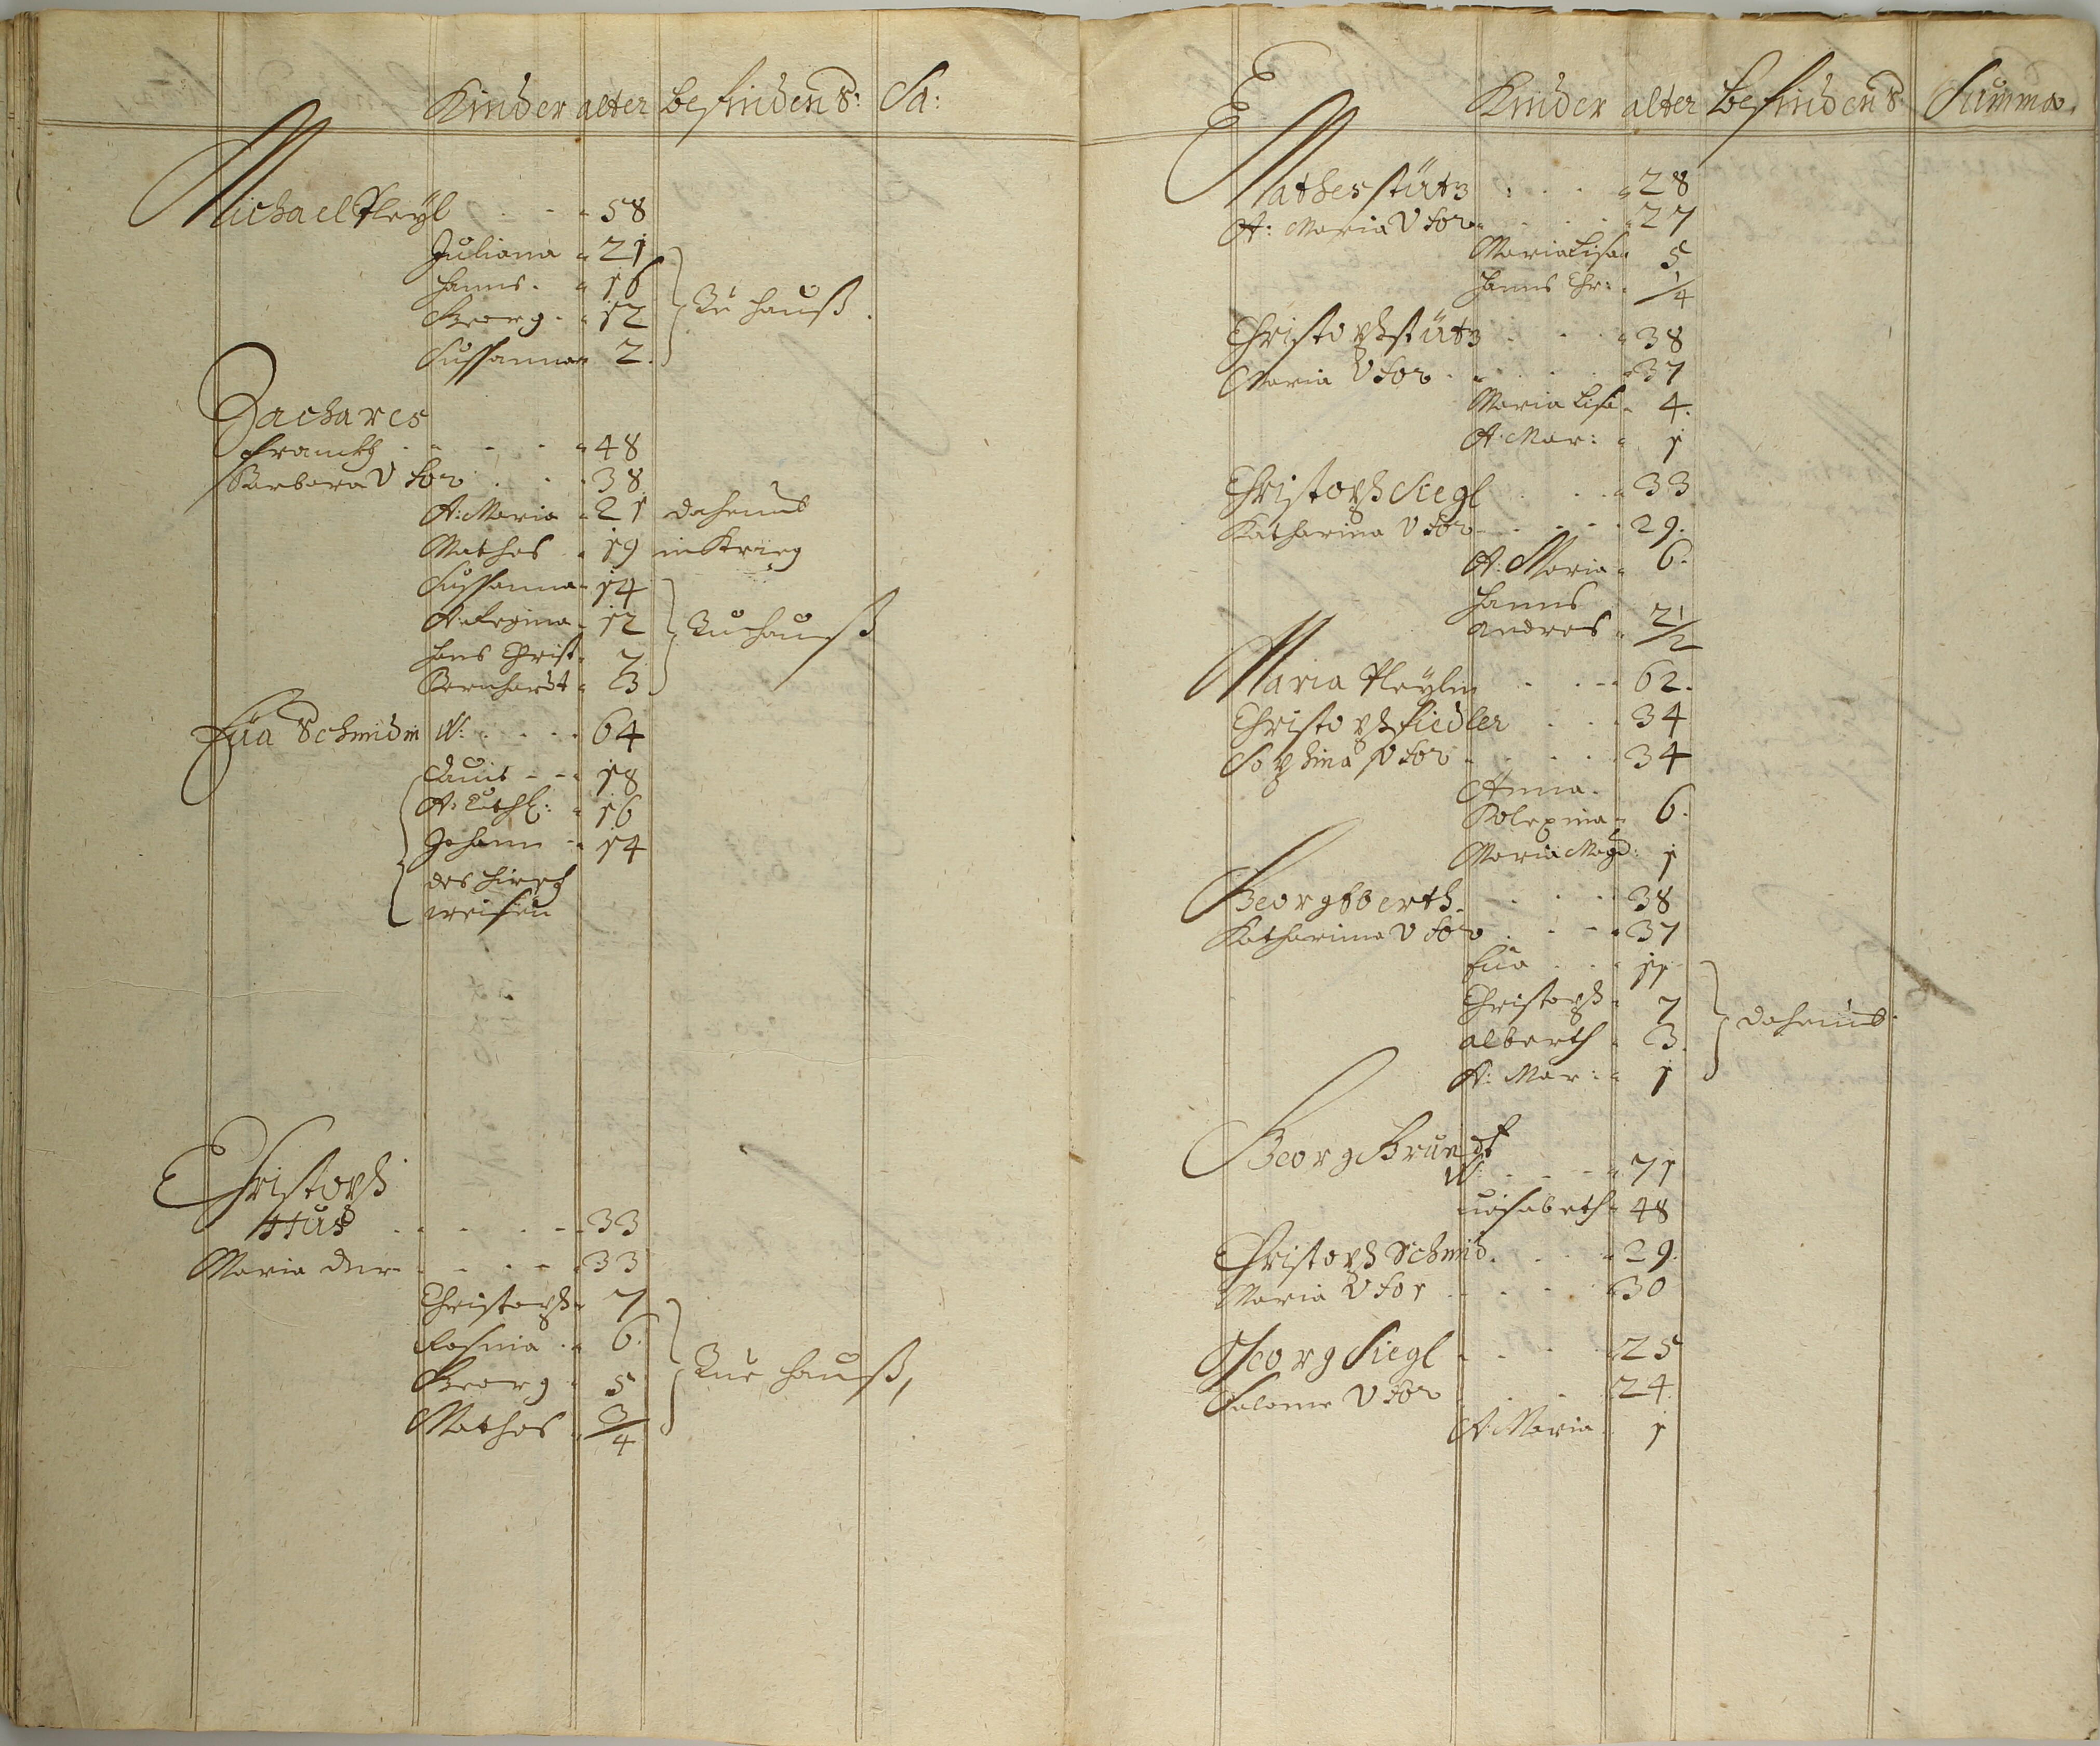 Kinder alter befindens: Sa:
Michael Pleyl - - 58
Juliana 21
Hanns 16
Georg 12
Sussanna 2.
Zu hauß.
Zachares
Franckh - - - 48
Barbara Vxor - - 38
A: Maria 21 daheimb
Mathes 19 in Krieg
Sussanna 14
A: Regina 12
Hans Christ 7
Bernhardt 3
Zu hauß
Eua Schmidin W: - - - 64
Dauit 18
16
Johann 14
des
weisen
Christoph
- - - 33
Maria - - - 33
Christoph 7
Rosina 6.
Georg 5
Mathes 3/4
Zue hauß,
Kinder alter Befindens Summa.
Mathes stütz - - - 28
A: Maria Vxor - - - 27
Maria Lisa 5
Hanns Chr: 1/4
Christoph stütz - - 38
Maria Vxor - - - 37
Maria Lisa 4.
A: Mar: 1
Christoph Siegl - - 33
Katharina Vxor - - - 29.
A: Maria 6.
Hanns
Andres 2 1/2
Maria Pleylin - - - 62.
Christoph Fiedler - - - 34
Sophina Vxor - - - 34
Anna
6.
Maria Magd: 1
Georg - - - 38
Katharina Vxor - - 37
Eua 11
Christoph 7
Alberth 3.
A: Mar: 1
daheimb.
Georg
W - - 71
48
Christoph Schmid - - - 29.
Maria Vxor - - - 30
Georg Siegl - - - 25
Salome Vxor - - 24
A: Maria 1